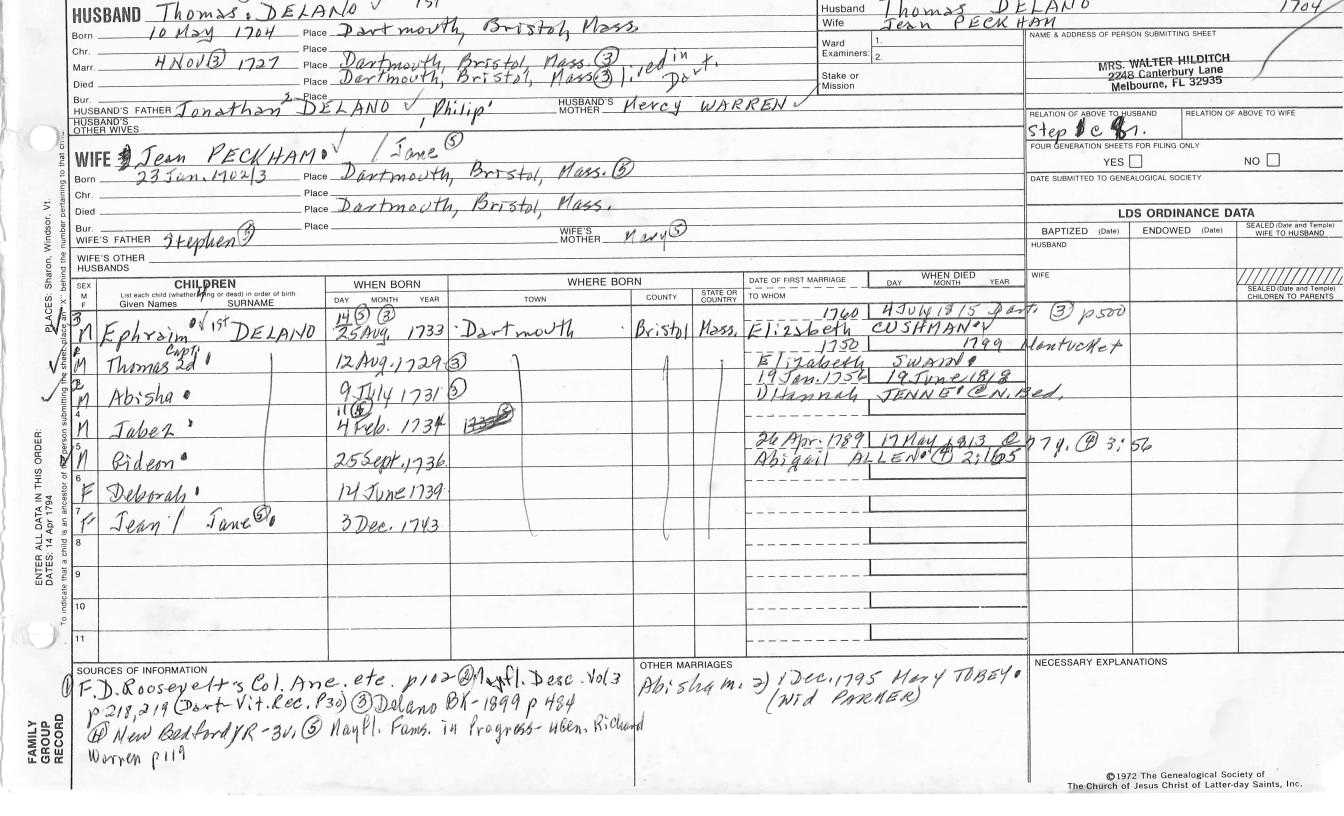 HUSBAND Thomas DELANO 1st
Born 10 May 1704 Place Dartmouth, Bristol, Mass.
Chr. Place
Marr. 4 Nov ③ 1727 Place Dartmouth, Bristol, Mass. ③
Died Place Dartmouth, Bristol, Mass ③ lived in Dart.
Bur. Place
HUSBAND'S FATHER Jonathan² DELANO, Philip¹ HUSBAND'S MOTHER Mercy WARREN
HUSBAND'S OTHER WIVES
WIFE Jean PECKHAM / Jane ⑤
Born 23 Jan. 1702/3 Place Dartmouth, Bristol, Mass. ⑤
Chr. Place
Died Place Dartmouth, Bristol, Mass.
Bur. Place
WIFE'S FATHER Stephen ⑤ WIFE'S MOTHER Mary ⑤
WIFE'S OTHER HUSBANDS
Husband Thomas DELANO 1704
Wife Jean PECKHAM
Ward 1.
Examiners: 2.
Stake or Mission
NAME & ADDRESS OF PERSON SUBMITTING SHEET
MRS. WALTER HILDITCH
2248 Canterbury Lane
Melbourne, FL 32935
RELATION OF ABOVE TO HUSBAND RELATION OF ABOVE TO WIFE
Step
FOUR GENERATION SHEETS FOR FILING ONLY
YES NO
DATE SUBMITTED TO GENEALOGICAL SOCIETY
LDS ORDINANCE DATA
BAPTIZED (Date) ENDOWED (Date) SEALED (Date and Temple) WIFE TO HUSBAND
HUSBAND
WIFE
SEALED (Date and Temple) CHILDREN TO PARENTS
SEX M F
CHILDREN
List each child (whether living or dead) in order of birth
Given Names SURNAME
WHEN BORN
DAY MONTH YEAR
WHERE BORN
TOWN COUNTY STATE OR COUNTRY
DATE OF FIRST MARRIAGE
TO WHOM
WHEN DIED
DAY MONTH YEAR
14 ⑤ ③ 1760 4 July 1815 Dart. ③ p500
3 M Ephraim 1st DELANO 25 Aug. 1733 Dartmouth Bristol Mass. Elizabeth CUSHMAN
Capt. 1750 1799 Nantucket
M Thomas 2d 12 Aug. 1729 ③ Elizabeth SWAIN
2 19 Jan. 1756 19 June 1818
M Abisha 9 July 1731 ③ Hannah JENNE @ N. Bed.
4 11 ④
M Jabez 4 Feb. 1734
5 26 Apr. 1789 17 May 1813 @ 77 y. ④ 3:56
M Gideon 25 Sept. 1736 Abigail ALLEN ④ 2:165
6 F Deborah 14 June 1739
7 F Jean / Jane ⑤ 3 Dec. 1743
8
9
10
11
SOURCES OF INFORMATION
① F.D. Roosevelt's Col. Anc. etc. p102 ② Mayfl. Desc. Vol 3
p218, 219 (Dart. Vit. Rec. P30) ③ Delano BK-1899 p 484
④ New Bedford VR-3v, ⑤ Mayfl. Fams. in Progress- 4Gen. Richard
Warren p119
OTHER MARRIAGES
Abisha m. 2) 1 Dec. 1795 Mary TOBEY
(Wid PARKER)
NECESSARY EXPLANATIONS
©1972 The Genealogical Society of
The Church of Jesus Christ of Latter-day Saints, Inc.
PLACES: Sharon, Windsor, Vt.
ENTER ALL DATA IN THIS ORDER:
DATES: 14 Apr 1794
To indicate that a child is an ancestor of the person submitting the sheet, place an "X" behind the number pertaining to that child.
FAMILY
GROUP
RECORD